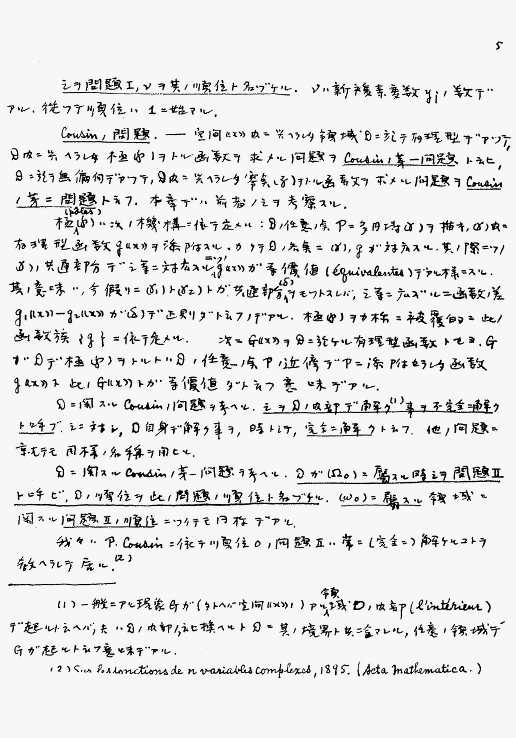 5
之ヲ問題 I, ν ヲ其ノ順位ト名ヅケル. ν ハ新複素変数 yj ノ数デ
アル. 従ツテ順位ハ 1 = 始マル.
Cousin ノ問題. — 空間 ((x)) 内ニ与ヘラレタ領域 D = 於テ有理型デアツテ,
D 内ニ与ヘラレタ極 (℘) ヲトル函数ヲ求メル問題ヲ Cousin ノ第一問題ト云ヒ,
D = 於テ デアツテ, D 内ニ与ヘラレタ零点 ヲトル函数ヲ求メル問題ヲ Cousin
ノ第二問題ト云フ. 本章デハ前者ノミヲ考察スル.
(pôles)
極 (℘) ハ次ノ機構ニ依テ定メル: D ノ任意ノ点 P = 多円筒 (γ) ヲ描キ, (γ) 内ニ
有理型函数 g((x)) ヲ添附スル. カクテ D ノ各点ニ (γ), g ガ対応スル. 其ノ際ニツノ
(γ) ノ共通部分デ之等ニ対応スル二ツノ g((x)) ガ等価値 (équivalentes) デアル様ニスル.
其ノ意味ハ, 今仮リニ (γ1) ト (γ2) トガ共通部分 (δ) ヲモツトスレバ, 之等ニ 函数ノ差
g1((x)) - g2((x)) ガ (δ) デ正則ダト云フノデアル. 極 (℘) ヲカ様ニ 此ノ
函数族 {g} ニ依テ定メル. 次ニ G((x)) ヲ D ニ於ケル有理型函数トセヨ. G
ガ D デ極 (℘) ヲトルトハ D ノ任意ノ点 P ノ近傍デ P ニ添附セラレタ函数
g((x)) ト此ノ G((x)) トガ等価値ダト云フ意味デアル.
D ニ関スル Cousin ノ問題ヲ考ヘル. 之ヲ D ノ内部デ解ク(1)事ヲ不完全ニ解ク
ト呼ブ. 之ニ対シ, D 自身デ解ク事ヲ, 時トシテ, 完全ニ解クト云フ. 他ノ問題ニ
就テモ同様ノ名称ヲ用ヒル.
D ニ関スル Cousin ノ第一問題ヲ考ヘル. D ガ (Ω0) ニ属スル時之ヲ問題 II
ト呼ビ, D ノ順位ヲ此ノ問題ノ順位ト名ヅケル. (ω0) ニ属スル領域ニ
関スル問題 II ノ順位ニツイテモ同様デアル.
我々ハ P. Cousin ニ依テ順位 0 ノ問題 II ハ常ニ (完全ニ) 解ケルコトヲ
教ヘラレテ居ル.(2)
(1) 一般ニアル現象 G ガ (タトヘバ空間 ((x)) ノ) アル領域 D ノ内部 (l'intérieur)
デ起ルト云ヘバ, D ノ境界ト共ニ含マレル, 任意ノ領域デ
G ガ起ルト云フ意味デアル.
(2) Sur les fonctions de n variables complexes, 1895. (Acta mathematica.)